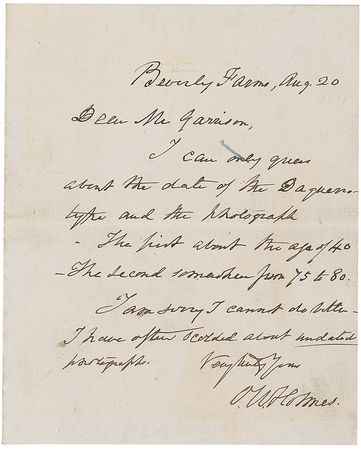 Beverly Farms, Aug. 20
Dear Mr Garrison,
I can only guess
about the date of the Daguerro-
type and the photograph
- The first about the age of 40
- The second somewhere from 75 to 80.
I am sorry I cannot do better -
I have often scolded about undated
photographs. Very truly Yours
O. W. Holmes.